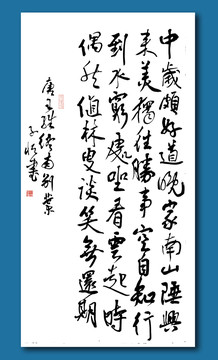 中歲頗好道晚家南山陲興
来美獨往勝事空自知行
到水窮處坐看雲起時
偶然值林叟談笑無還期
唐王維終南別業